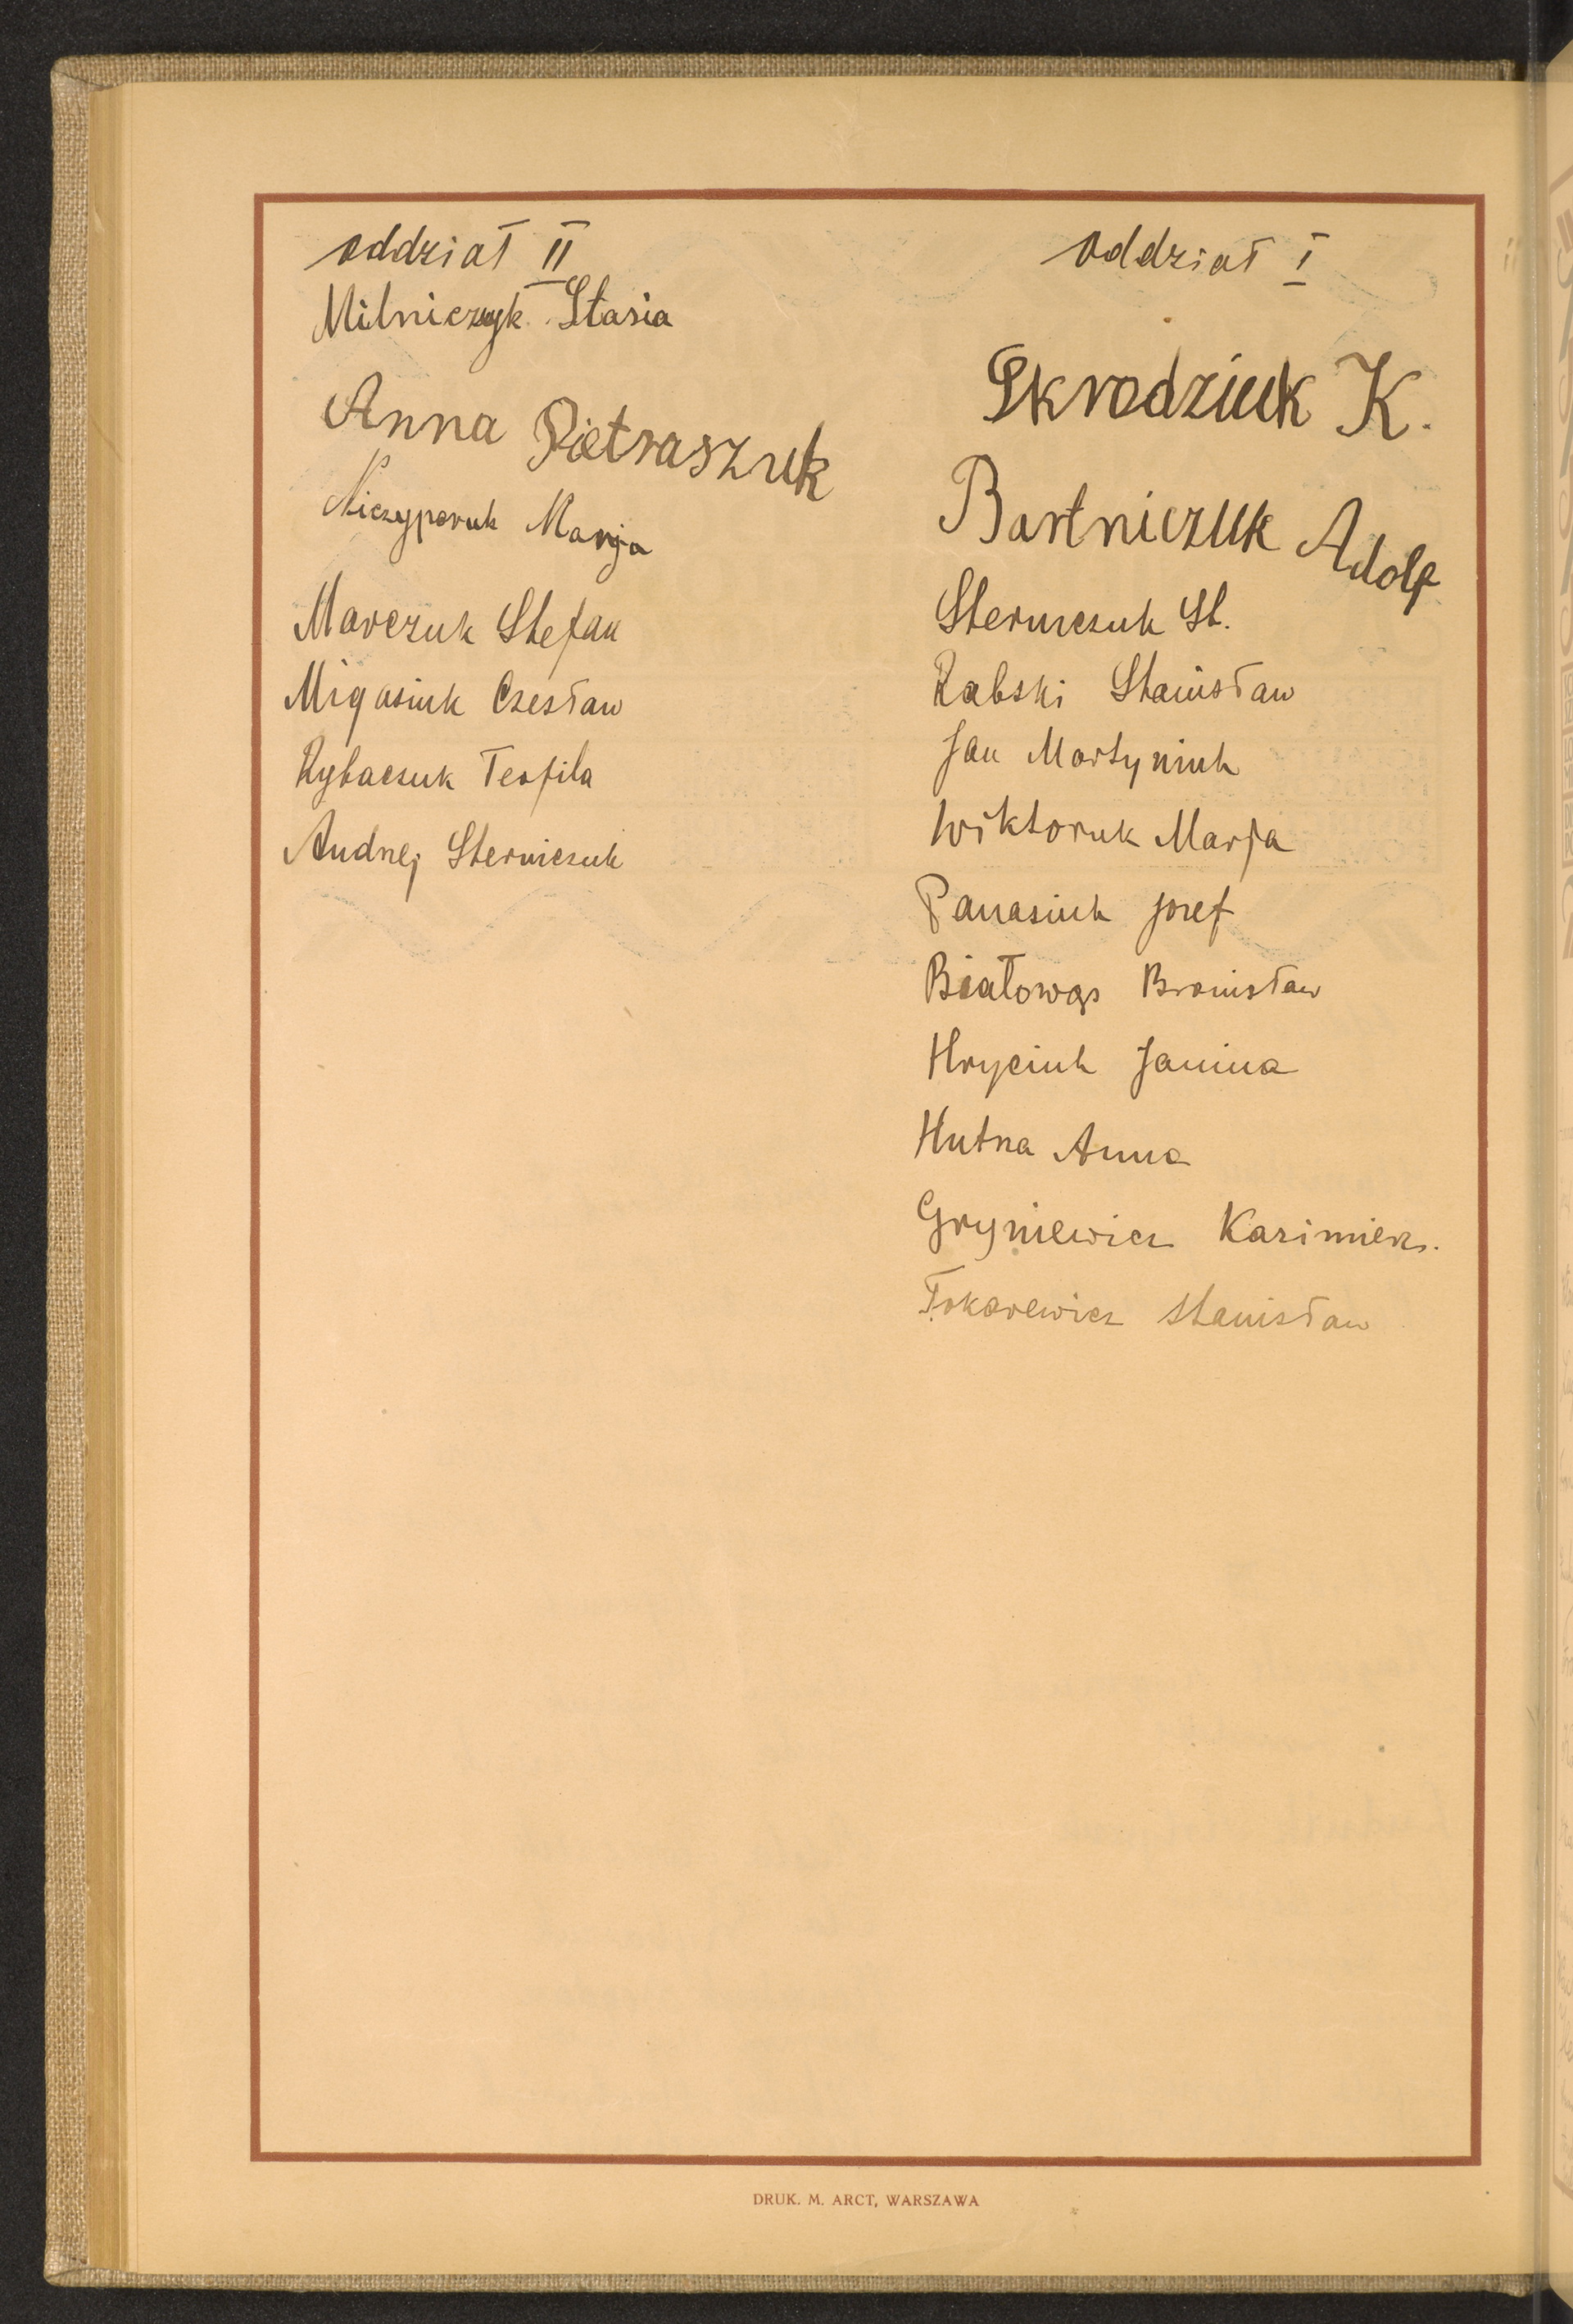 oddział II
Milniczuk Stasia
Anna Pietraszuk
Niczyporuk Marja
Marczuk Stefan
Migasiuk Czesław
Rybaczuk Teofila
Andrzej Sterniczuk
oddział I
Skrodziuk K.
Bartniczuk Adolf
Sterniczuk St.
Rabski Stanisław
Jan Martyniuk
Wiktoruk Marja
Panasiuk Józef
Białowąs Bronisław
Hryciuk Janina
Hutna Anna
Gryniewicz Kazimierz.
Tokarewicz Stanisław
DRUK. M. ARCT, WARSZAWA